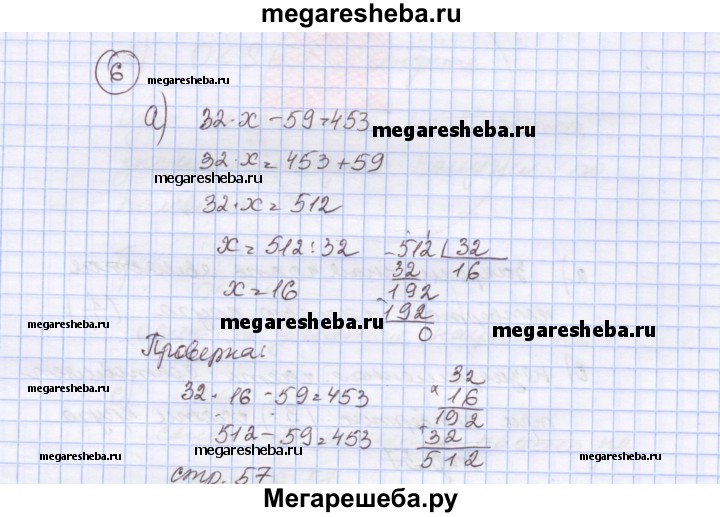 megaresheba.ru
6
megaresheba.ru
а) 32·x - 59 = 453
megaresheba.ru
32·x = 453 + 59
megaresheba.ru
32·x = 512
x = 512 : 32
-512 32
32 16
x = 16
-192
192
0
megaresheba.ru
megaresheba.ru
megaresheba.ru
Проверка:
32 · 16 - 59 = 453
512 - 59 = 453
×32
16
+192
32
512
megaresheba.ru
megaresheba.ru
megaresheba.ru
megaresheba.ru
стр. 57
Мегарешеба.ру